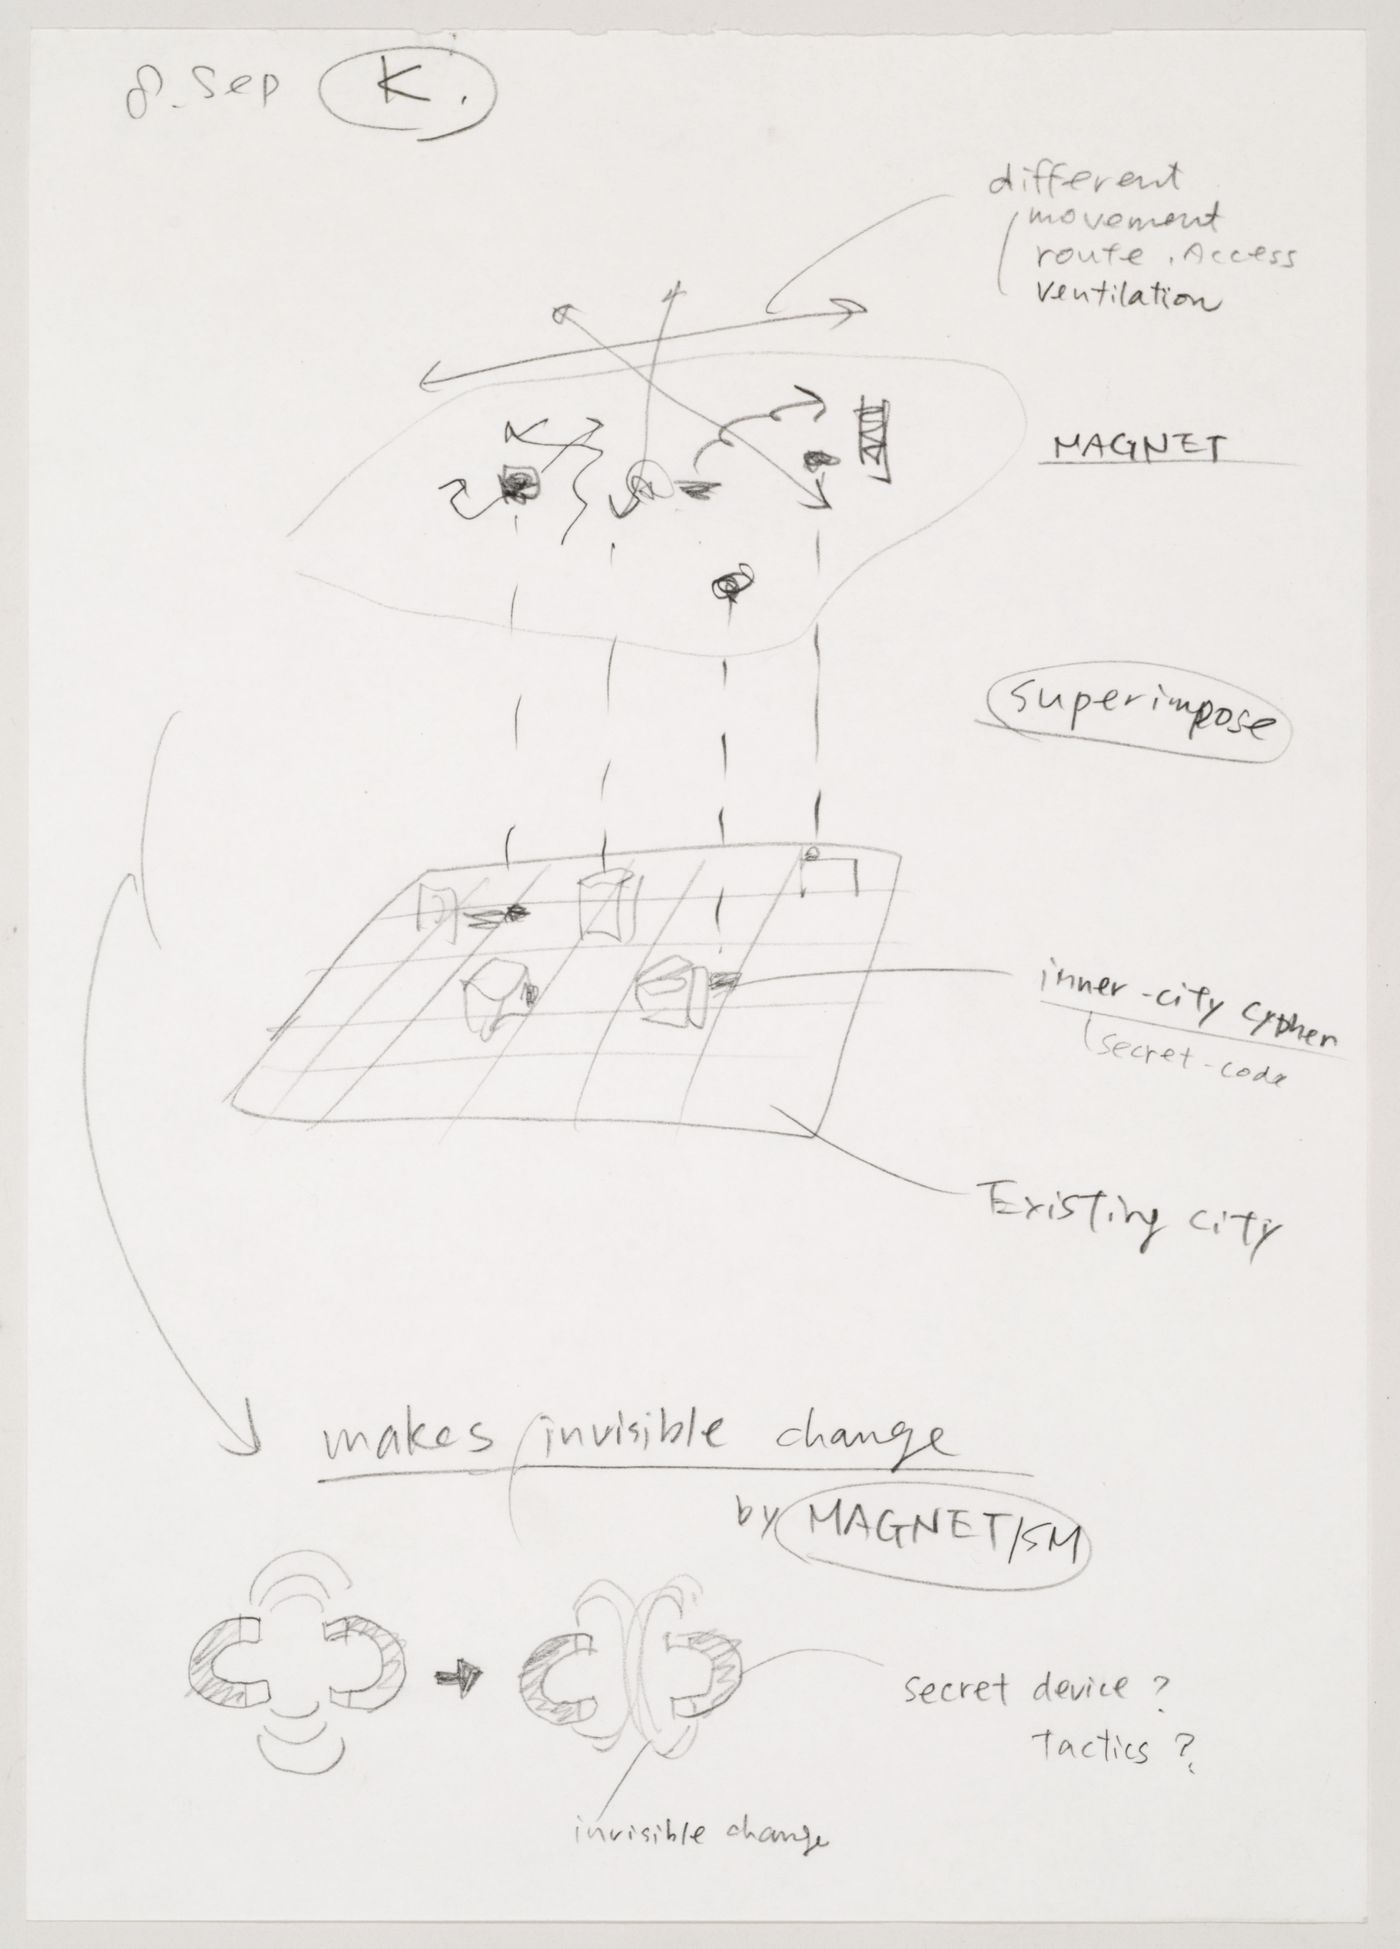 8. Sep K.
different
movement
route . Access
ventilation
MAGNET
superimpose
inner-city cypher
secret-code
Existing city
makes invisible change
by MAGNET/SM
secret device ?
tactics ?
invisible change